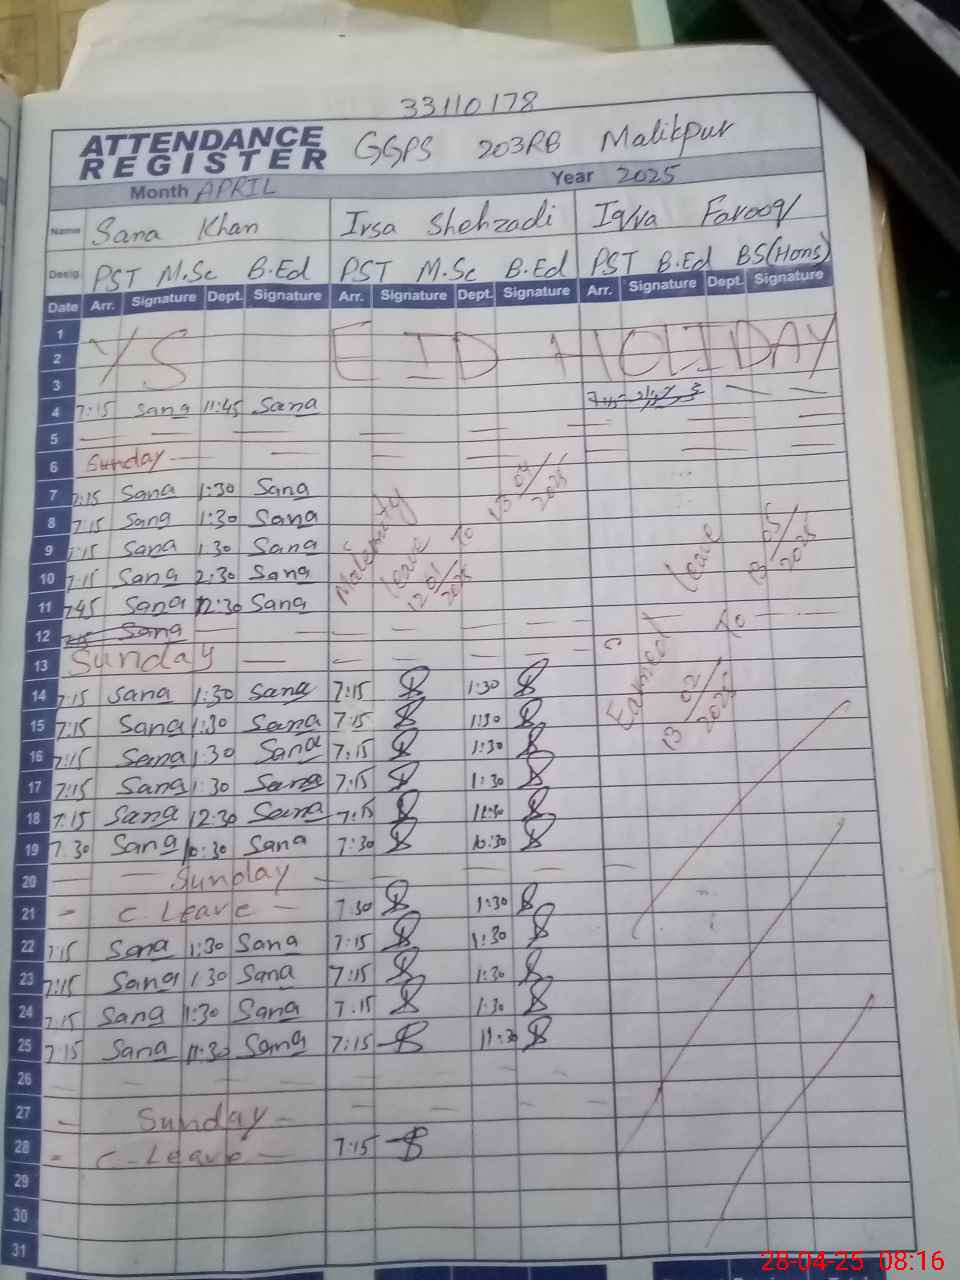 33110178
ATTENDANCE REGISTER GGPS 203RB Malikpur
Month APRIL Year 2025
Name Sana Khan Irsa Shehzadi Iqra Farooq
Desig. PST M.Sc B.Ed PST M.Sc B.Ed PST B.Ed BS(Hons)
Date Arr. Signature Dept. Signature Arr. Signature Dept. Signature Arr. Signature Dept. Signature
1
2 EID HOLIDAY
3
4 7:15 Sana 11:45 Sana
5
6 Sunday
7 7:15 Sana 1:30 Sana
8 7:15 Sana 1:30 Sana
9 7:15 Sana 1:30 Sana
10 7:15 Sana 2:30 Sana
11 7:45 Sana 12:30 Sana
Maternity leave 12/01/2025 To 13/04/2025
Earned leave 13/02/2025 To 13/05/2025
12 7:15 Sana
13 Sunday
14 7:15 Sana 1:30 Sana 7:15 1:30
15 7:15 Sana 1:30 Sana 7:15 1:30
16 7:15 Sana 1:30 Sana 7:15 1:30
17 7:15 Sana 1:30 Sana 7:15 1:30
18 7:15 Sana 12:30 Sana 7:15
19 7:30 Sana 10:30 Sana 7:30 10:30
20 Sunday
21 C Leave 7:30 1:30
22 7:15 Sana 1:30 Sana 7:15 1:30
23 7:15 Sana 1:30 Sana 7:15 1:30
24 7:15 Sana 1:30 Sana 7:15 1:30
25 7:15 Sana 11:30 Sana 7:15 11:30
26
27 Sunday
28 C-Leave 7:15
29
30
31
28-04-25 08:16